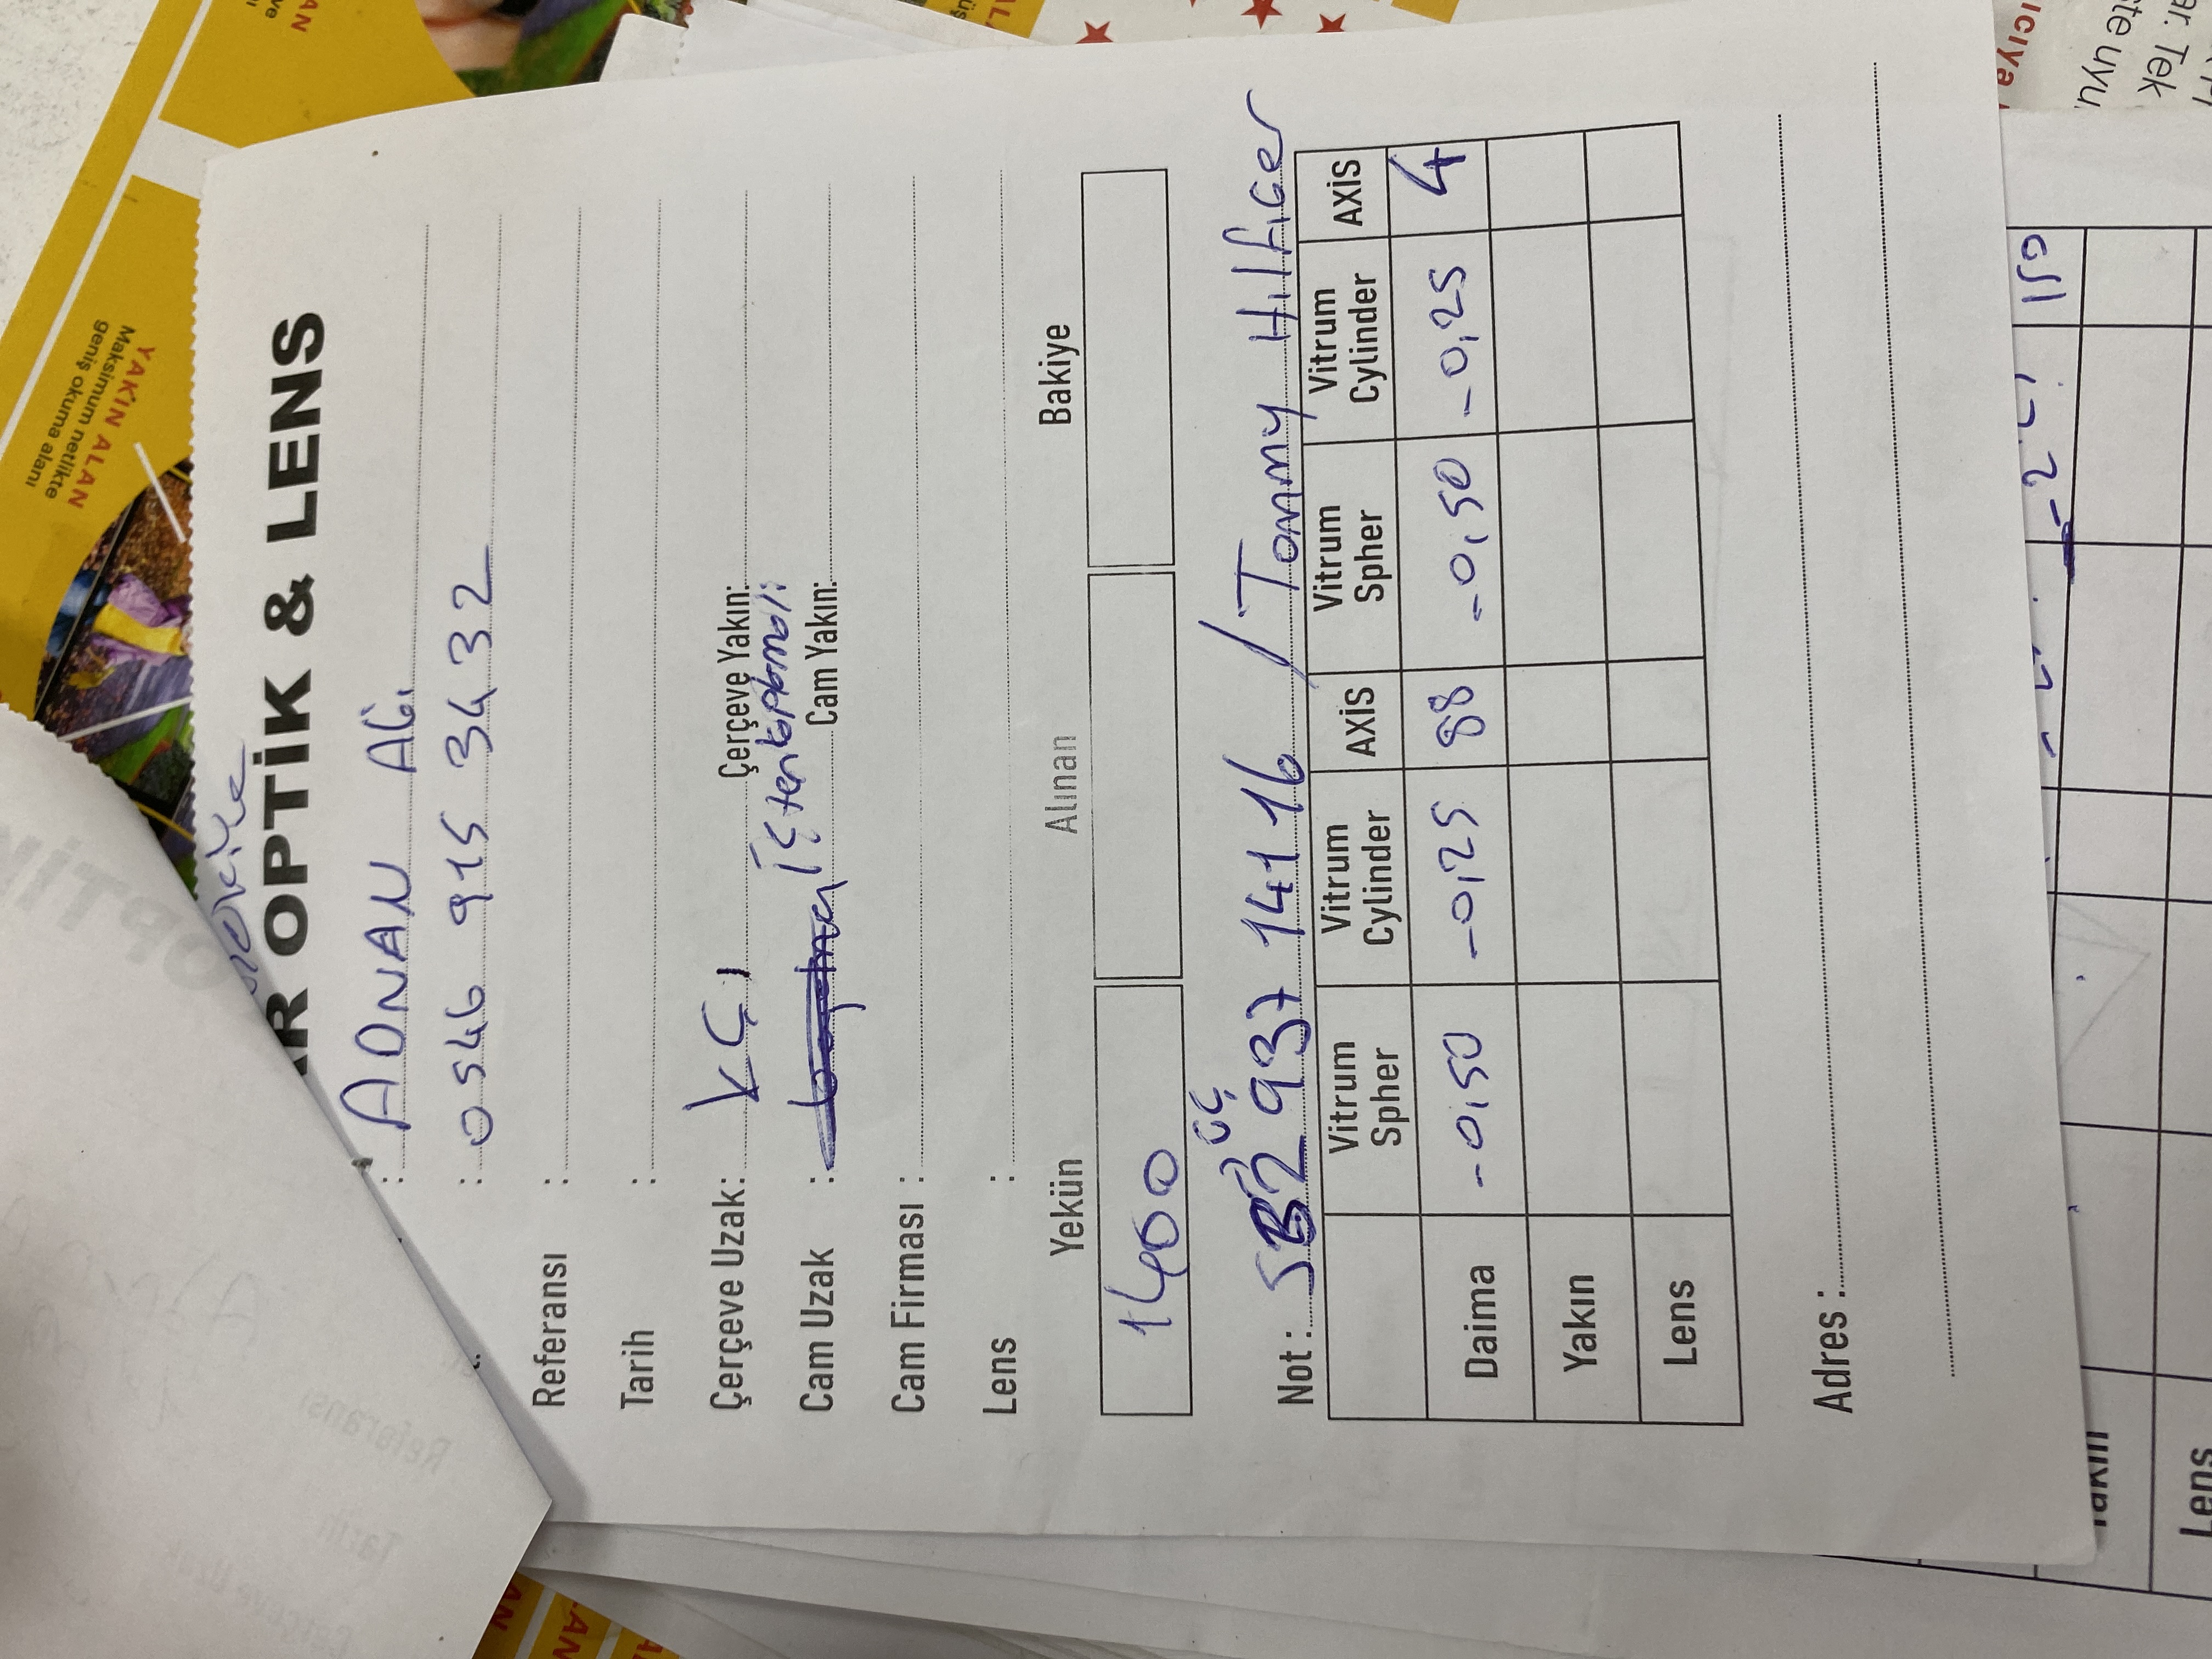 YAKIN ALAN
Maksimum netlikte
geniş okuma alanı
AR OPTİK & LENS
: ADNAN AĞı
: 0546 915 3432
Referansı :
Tarih :
Çerçeve Uzak: kÇı Çerçeve Yakın:
içten toplamalı
Cam Uzak : Cam Yakın:
Cam Firması :
Lens :
Yekün Alınan Bakiye
1400
üç
Not : 532 937 14116 / Tommy HilfiGer
Vitrum Spher Vitrum Cylinder AXİS Vitrum Spher Vitrum Cylinder AXİS
Daima -0,50 -0,25 88 -0,50 -0,25 4
Yakın
Lens
Adres :
150
Yakın
Lens